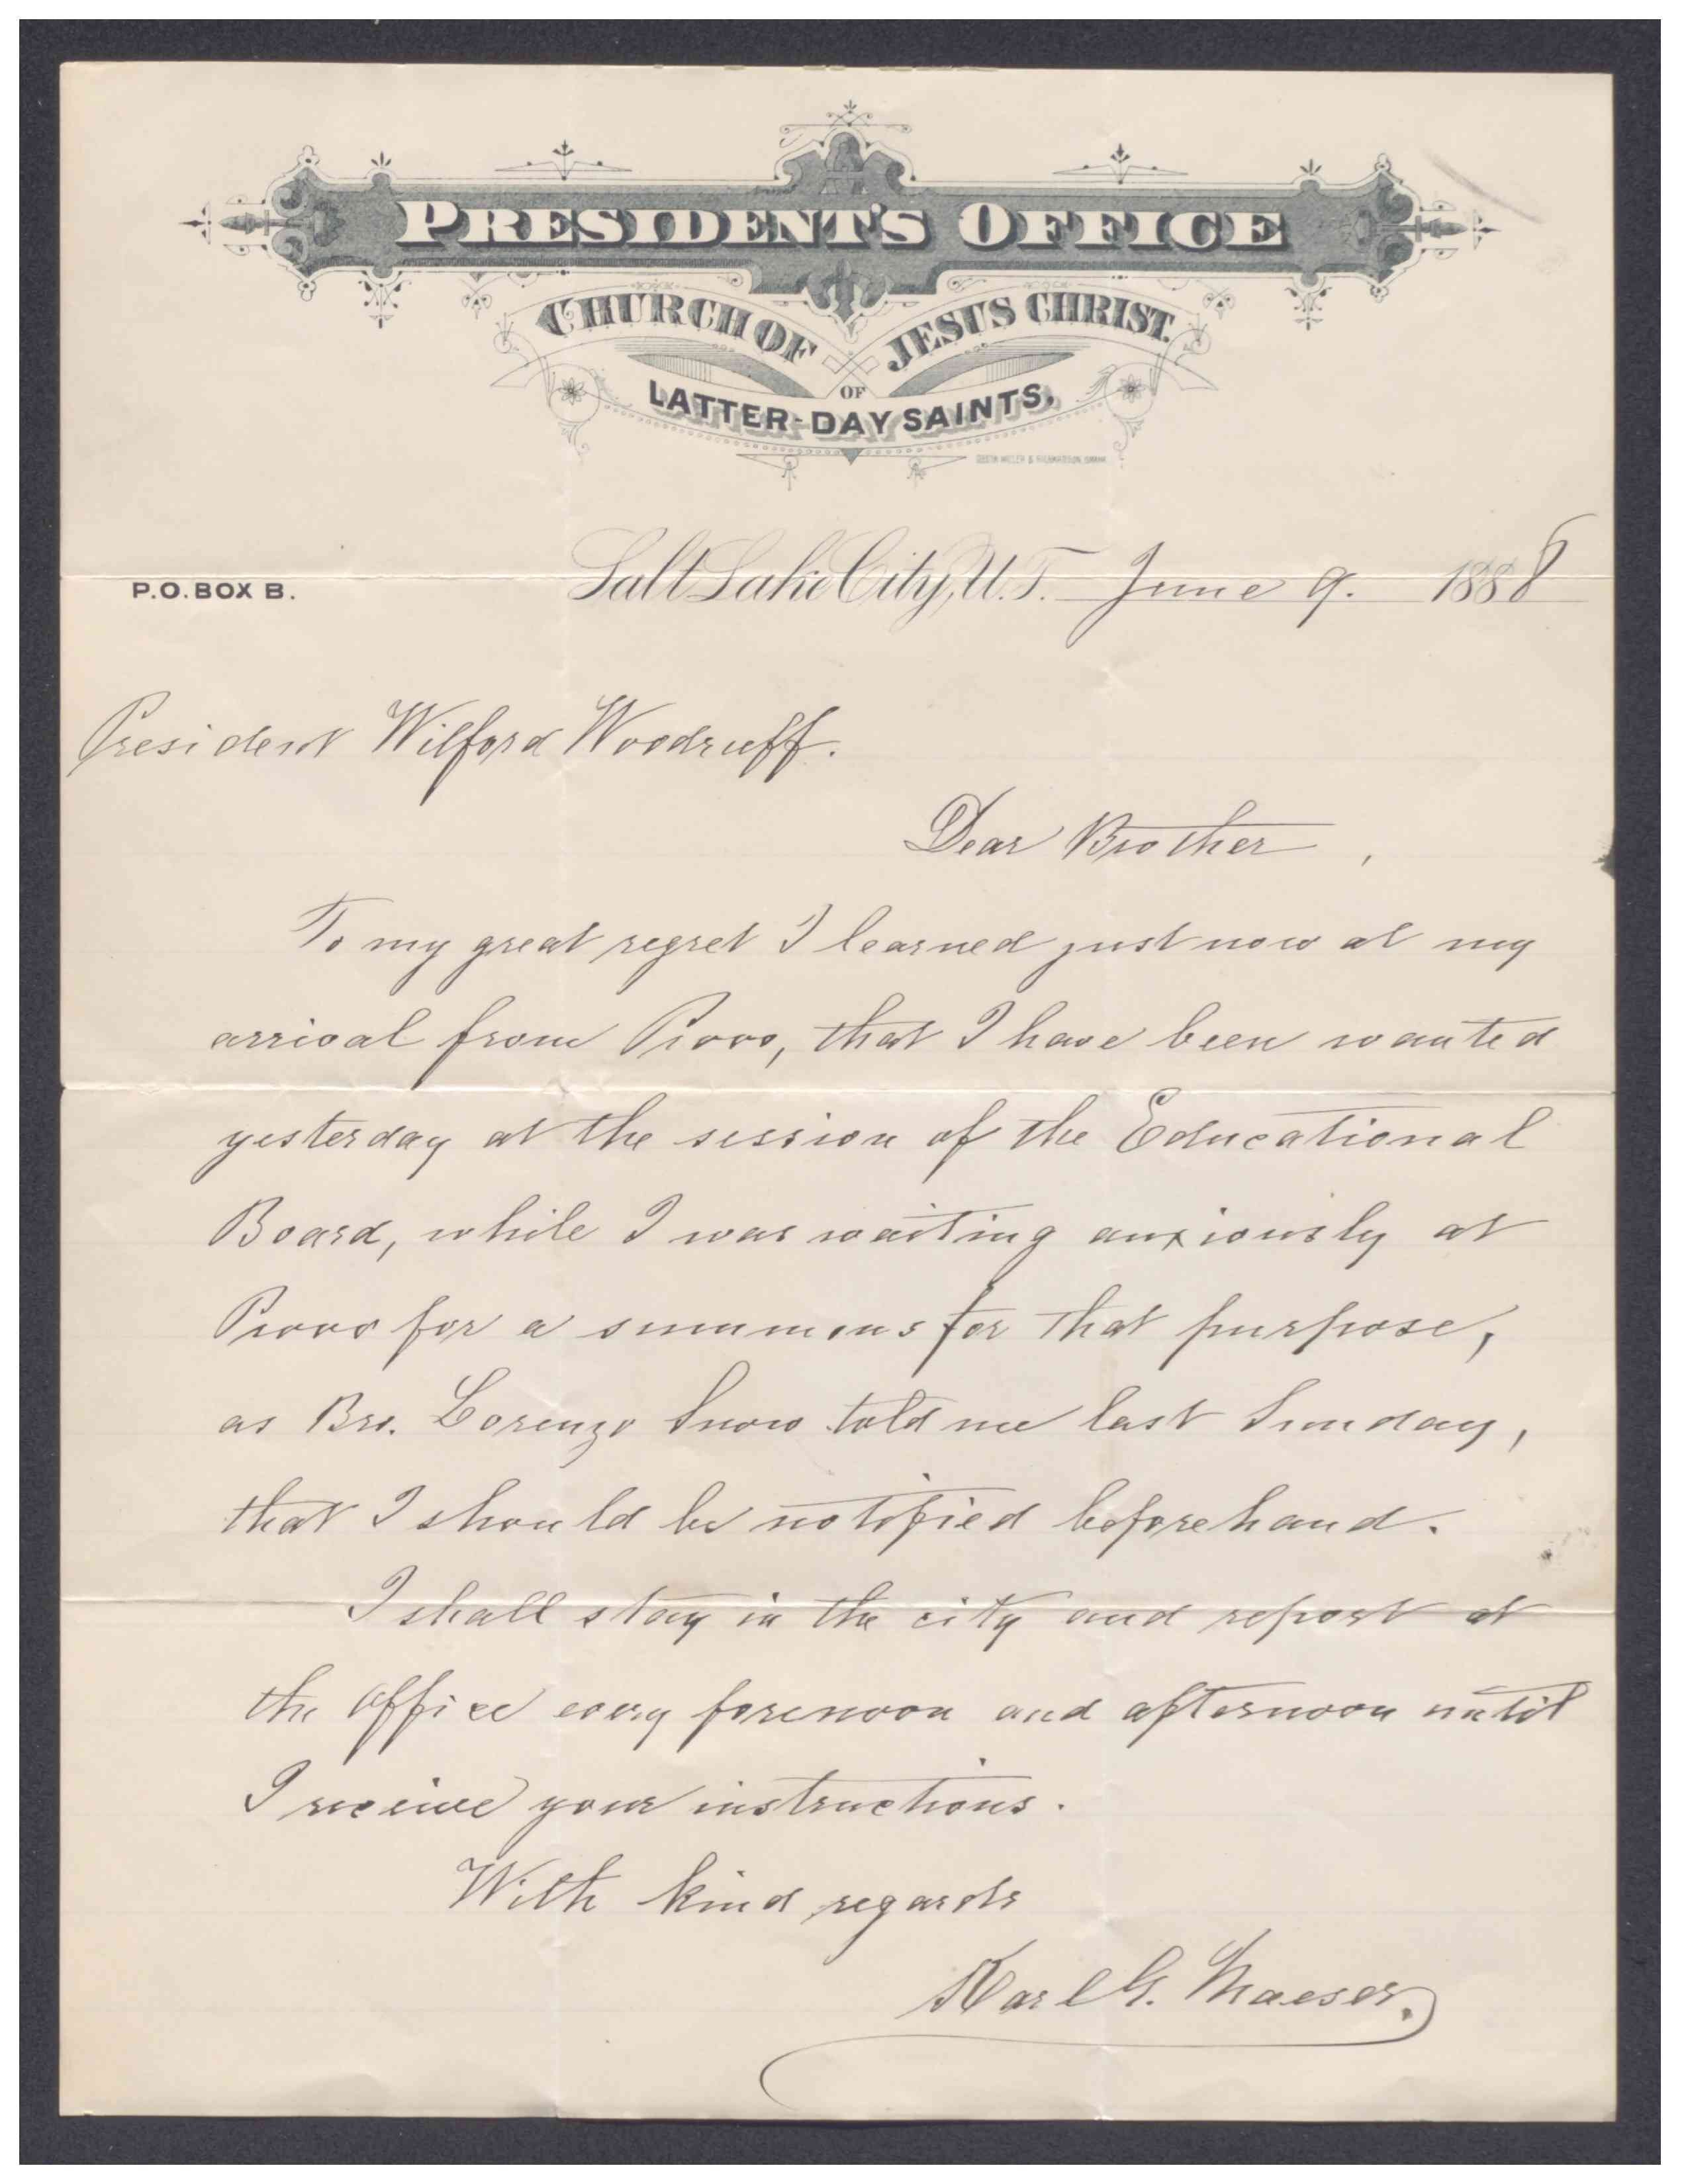 PRESIDENT'S OFFICE
CHURCH OF JESUS CHRIST.
OF
LATTER-DAY SAINTS.
P.O. BOX B.
Salt Lake City, U.T. June 9. 1888
President Wilford Woodruff.
Dear Brother,
To my great regret I learned just now at my
arrival from Provo, that I have been wanted
yesterday at the session of the Educational
Board, while I was waiting anxiously at
Provo for a summons for that purpose,
as Bro. Lorenzo Snow told me last Sunday,
that I should be notified beforehand.
I shall stay in the city and report at
the office every forenoon and afternoon until
I receive your instructions.
With kind regards
Karl G. Maeser.